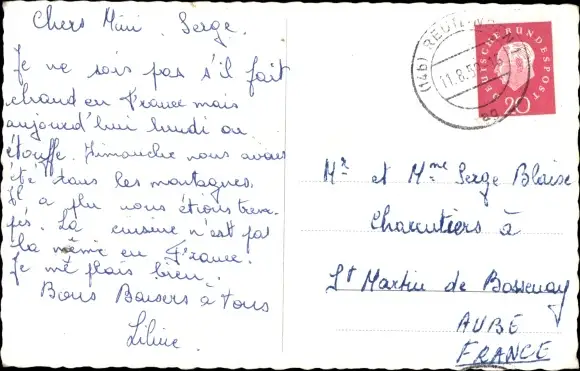 Chers Mini. Serge.
Je ne sais pas s'il fait
chaud en France mais
aujourd'hui lundi on
étouffe. Dimanche nous avons
été dans les montagnes.
Il a plu nous étions trem-
pés. La cuisine n'est pas
la même en France.
Je me plais bien.
Bons Baisers à tous
Liline.
(14b) REUTL
11.8.5
DEUTSCHE BUNDESPOST
20
Mr et Mme Serge Blaise
Charcutiers à
St Martin de Bossenay
AUBE
FRANCE